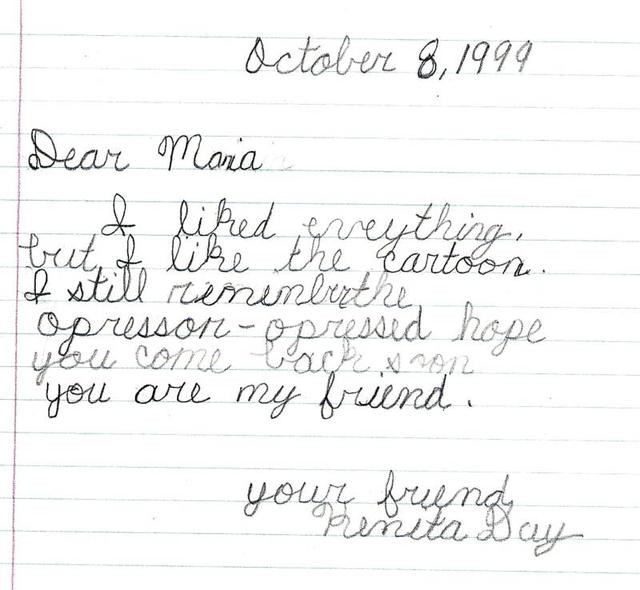 October 8, 1999
Dear Maria
I liked enveything,
but I like the cartoon.
I still rememberthe
opressor-opressed hope
you come back soon
you are my friend.
your friend,
Renita Day